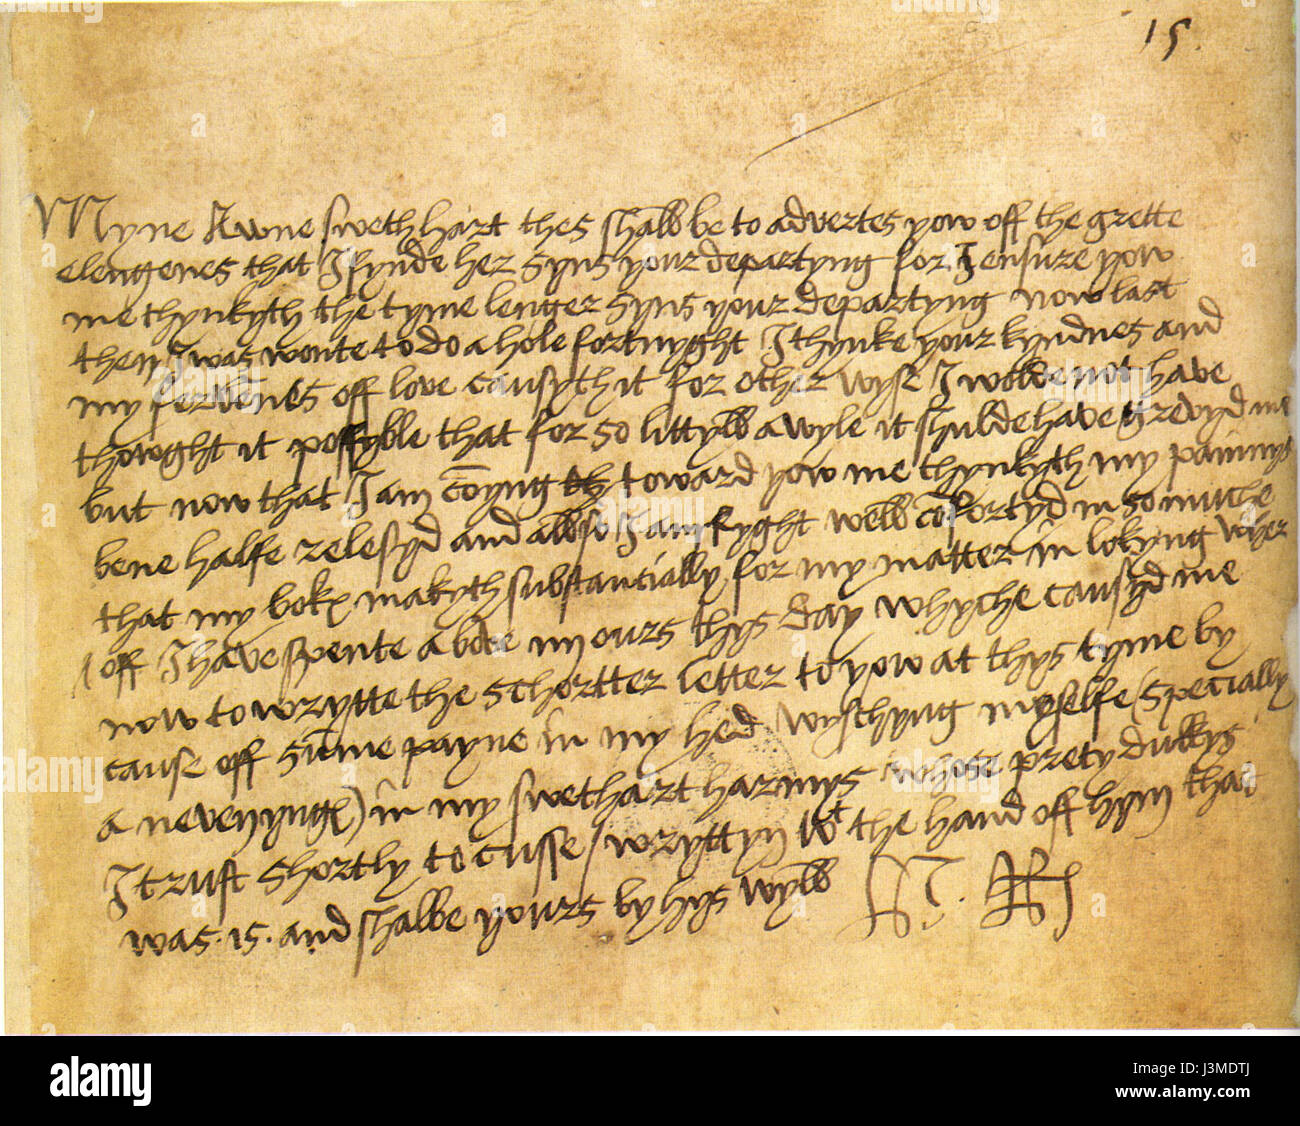 15.
Myne Awne swethhart thes shall be to advertes yow off the grette
elengenes that I fynde her syns your departyng for I ensure yow
me thynkyth the tyme lenger syns your departyng now last
then I was wonte to do a hole fortnyght I thynke your kyndnes and
my fervēnes off love causyth it for other wyse I wolde not have
thowght it possyble that for so littyll a wyle it shulde have grevyd me
but now that I am cōmyng toward yow me thynkyth my painnys
bene halfe relesyd and allso I am ryght well cōfortyd in so muche
that my boke makyth substantially for my matter in lokyng wher
off I have spente above iiij ours thys day whyche causyd me
now to wrytte the schortter letter to yow at thys tyme by
cause off sūme payne in my hed wyschyng myselfe (specially
a nevenyng) in my swethart harmys whose prety dukkys
I trust shortly to cusse / wryttyn wt the hand off hym that
was .is. and shalbe yours by hys wyll H. Rx
alamy
J3MDTJ
www.alamy.com